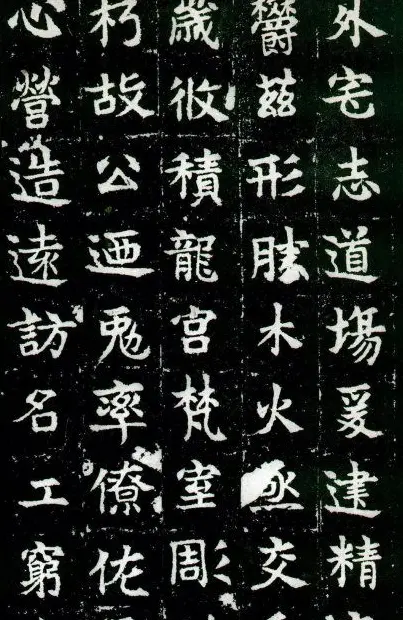 外宅志道塲爰建精
欝茲形勝木火烝交
歲攸積龍宮梵室彫
朽故公迺勉率僚佐
心營造遠訪名工窮